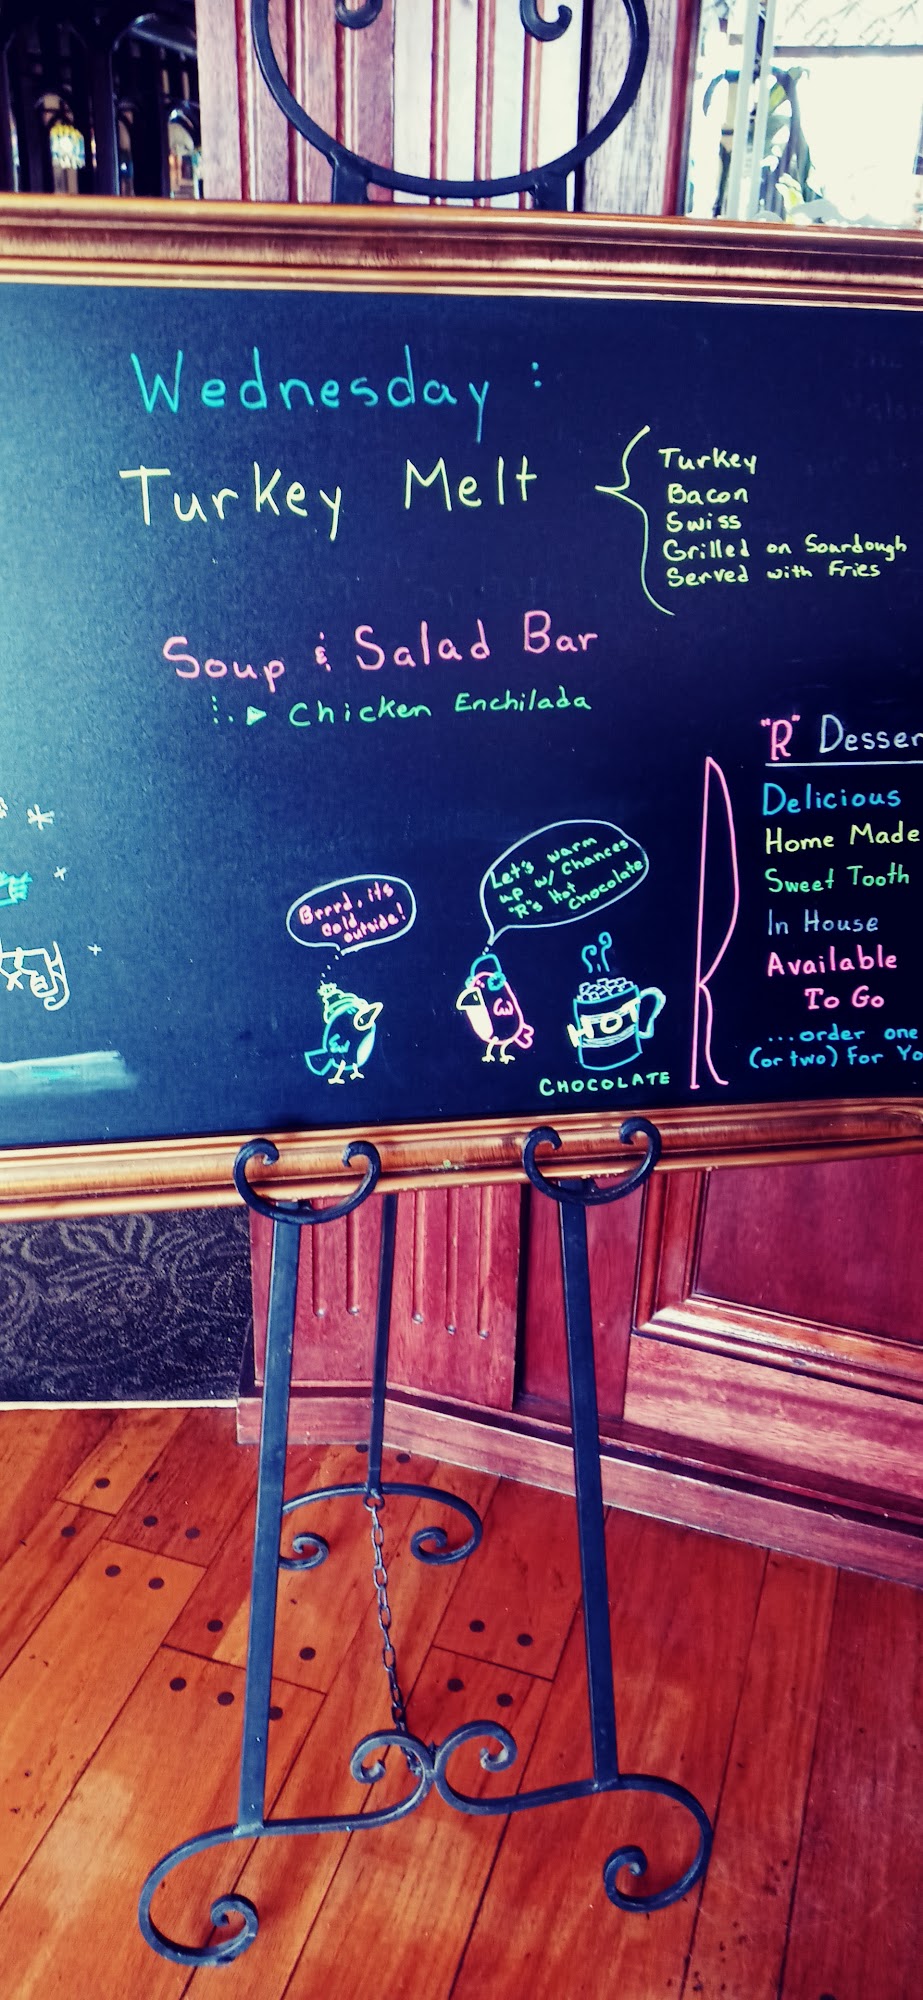 Wednesday :
Turkey Melt
Turkey
Bacon
Swiss
Grilled on Sourdough
Served with Fries
Soup & Salad Bar
Chicken Enchilada
"R" Desser
Delicious
Home Made
Sweet Tooth
In House
Available
To Go
...order one
(or two) For Yo
Brrrd, its
cold
outside!
Let's warm
up w/ Chances
"R"s Hot
Chocolate
HOT
CHOCOLATE